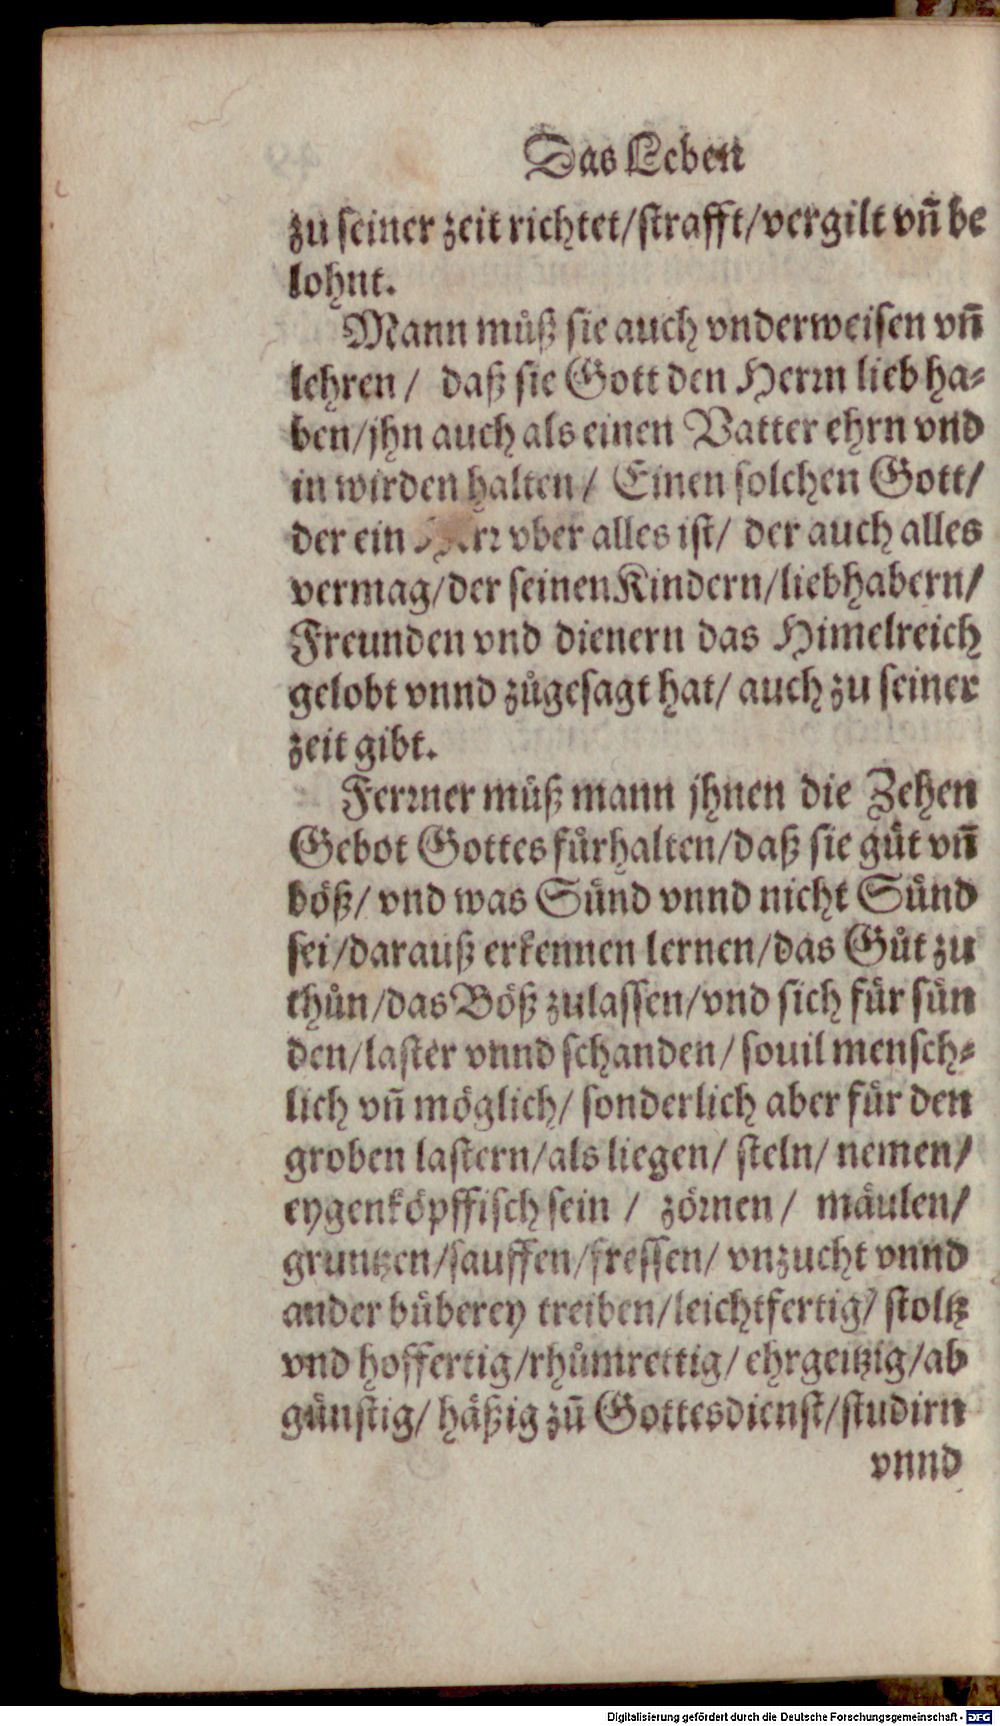 Das Leben
zu seiner zeit richtet/strafft/vergilt vñ be
lohnt.
Mann můß sie auch vnderweisen vñ
lehren/ daß sie Gott den Herrn lieb ha-
ben/jhn auch als einen Vatter ehrn vnd
in wirden halten/ Einen solchen Gott/
der ein vber alles ist/ der auch alles
vermag/der seinen Kindern/liebhabern/
Freunden vnd dienern das Himelreich
gelobt vnnd zůgesagt hat/ auch zu seiner
zeit gibt.
Ferrner můß mann jhnen die Zehen
Gebot Gottes fürhalten/daß sie gůt vñ
böß/ vnd was Sünd vnnd nicht Sünd
sei/darauß erkennen lernen/das Gůt zu
thůn/das Böß zulassen/vnd sich für sün
den/laster vnnd schanden/ souil mensch-
lich vñ möglich/ sonderlich aber für den
groben lastern/als liegen/ steln/ nemen/
eygenköpffisch sein / zörnen/ mäulen/
gruntzen/sauffen/fressen/ vnzucht vnnd
ander büberey treiben/leichtfertig/ stoltz
vnd hoffertig/rhůmrettig/ ehrgeitzig/ab
günstig/ häßig zů Gottesdienst/studirn
vnnd
Digitalisierung gefördert durch die Deutsche Forschungsgemeinschaft - DFG